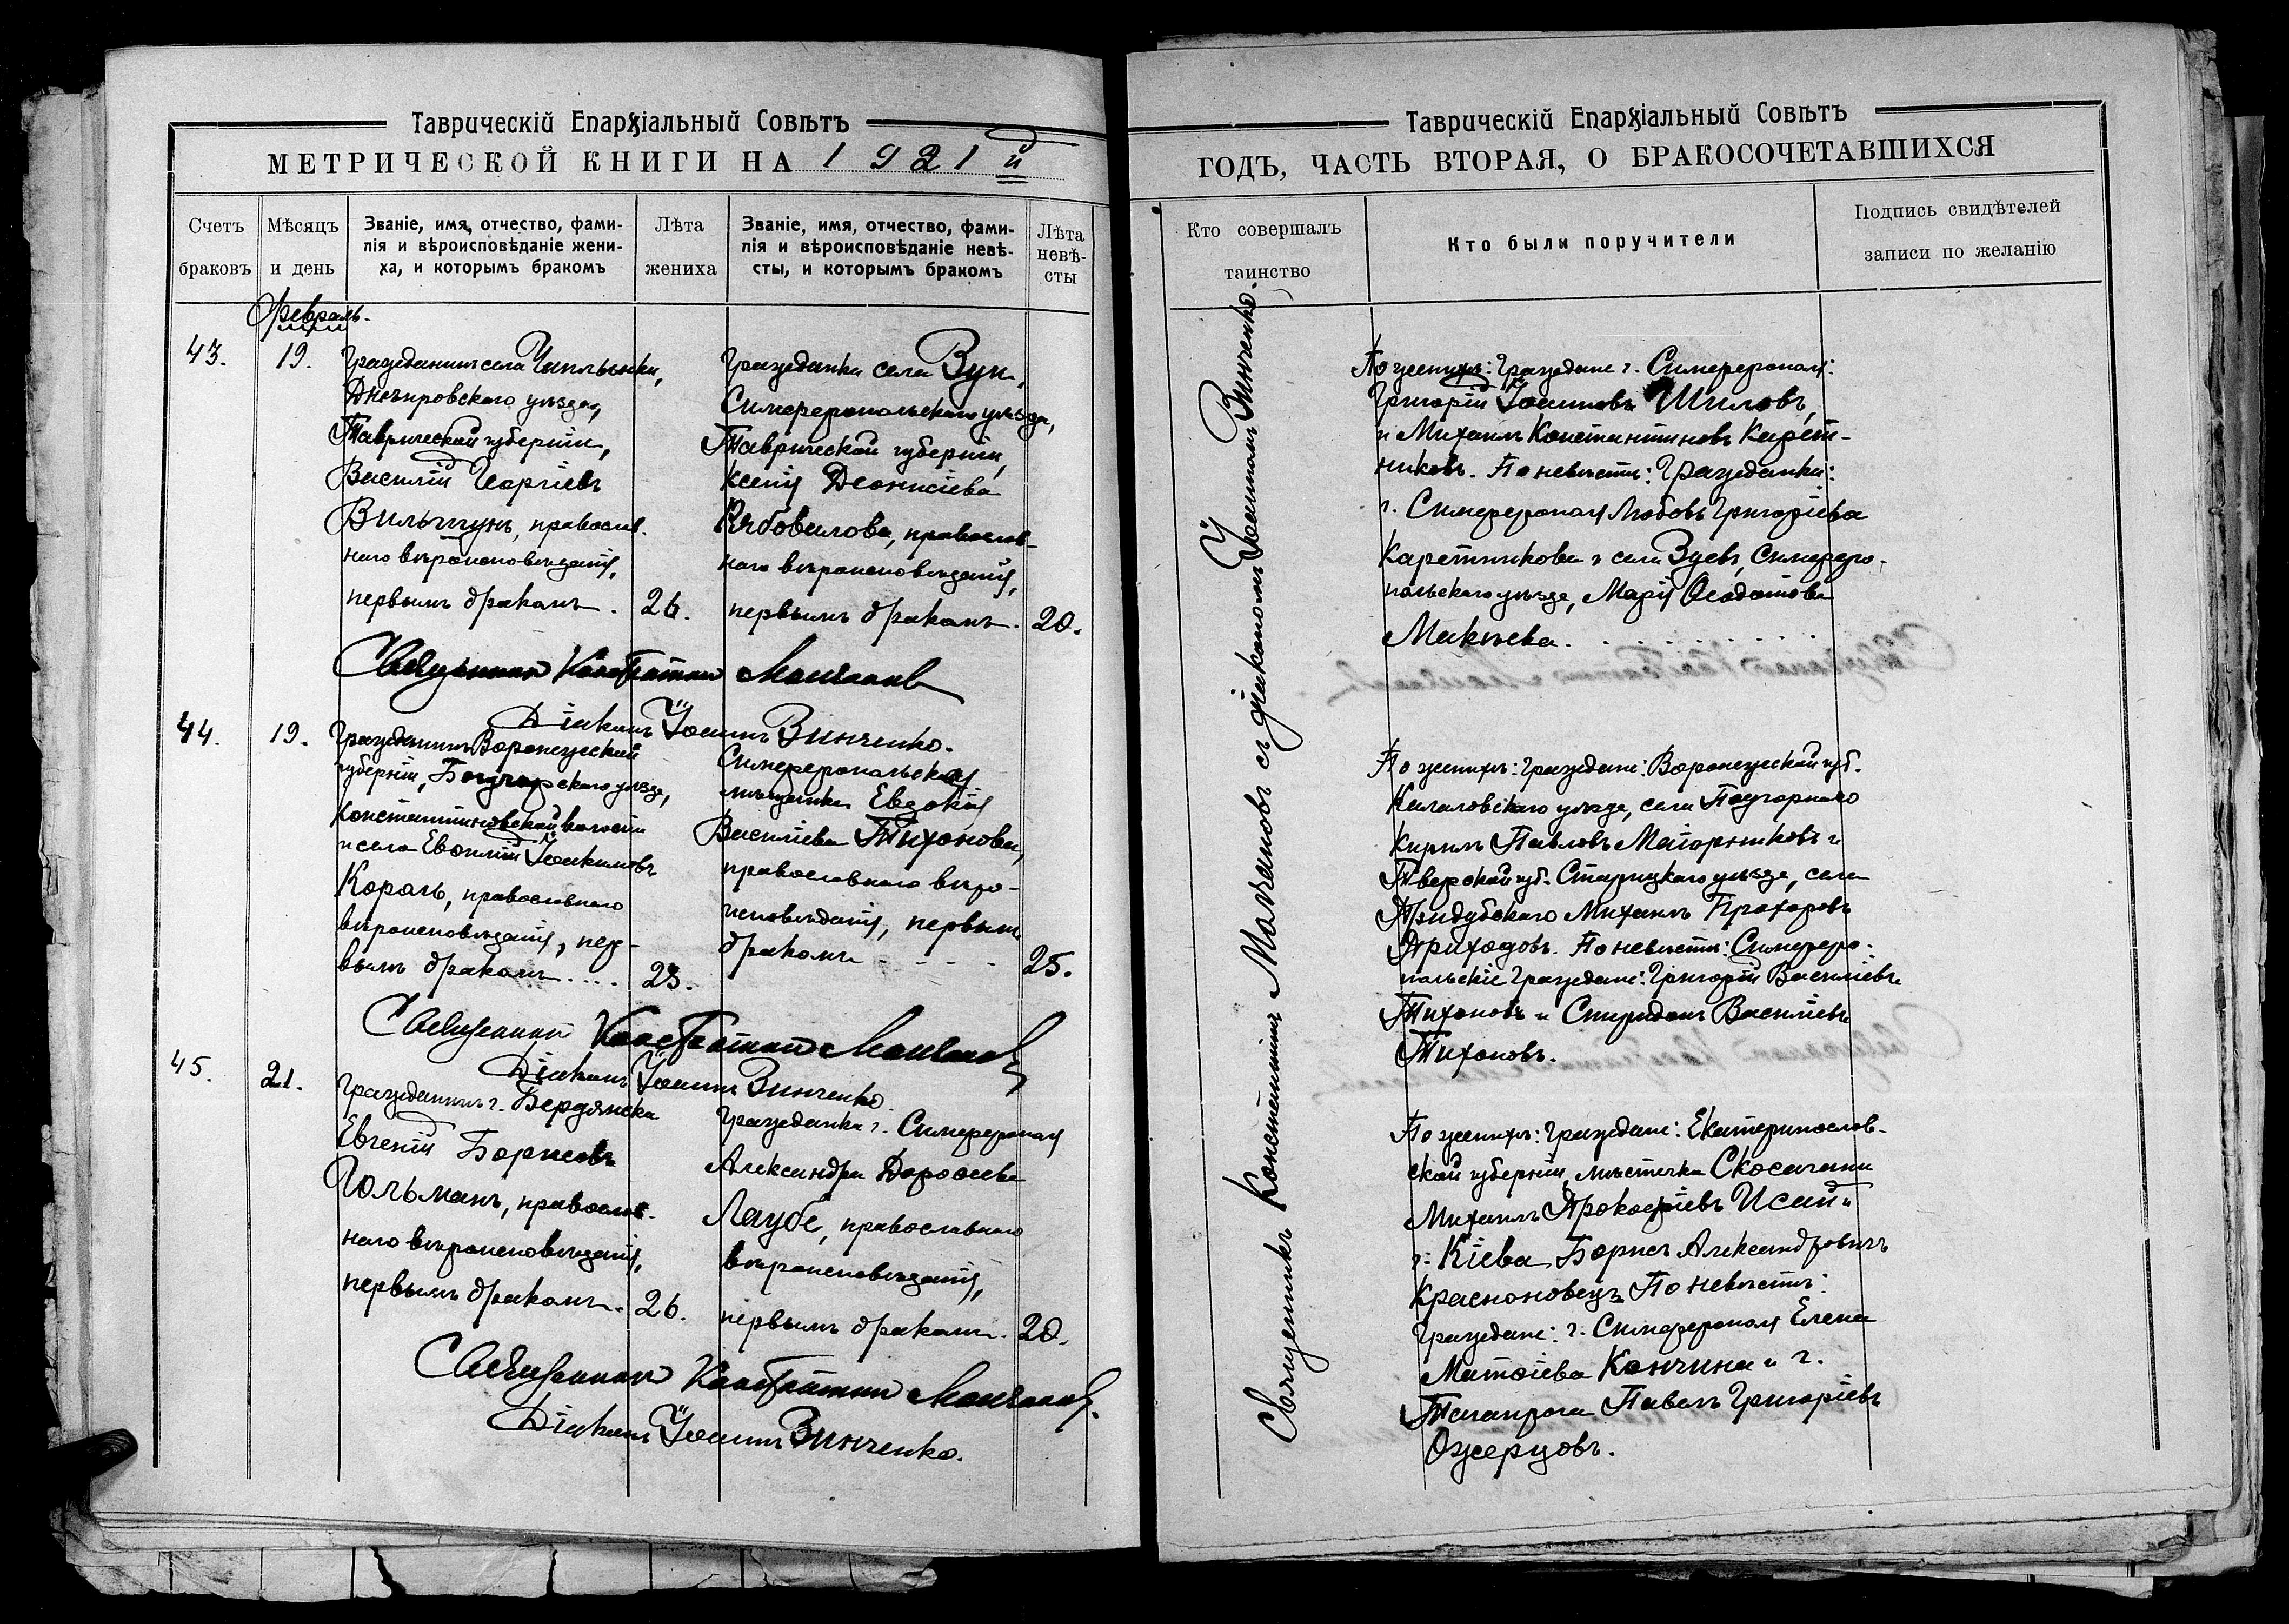 Таврическій Епархіальный Совѣтъ
МЕТРИЧЕСКОЙ КНИГИ НА 1921й
Счетъ браковъ
Мѣсяцъ и день
Званіе, имя, отчество, фами-
лія и вѣроисповѣданіе жени-
ха, и которымъ бракомъ
Лѣта жениха
Званіе, имя, отчество, фами-
лія и вѣроисповѣданіе невѣ-
сты, и которымъ бракомъ
Лѣта
невѣ-
сты
Февраль.
43.
19.
Гражданинъ села Чаплынки,
Днѣпровскаго уѣзда,
Таврической губерніи,
Василій Георгіевъ
православ-
наго вѣроисповѣданія,
первымъ бракомъ.
26.
Гражданка села Зуи,
Симферопольскаго уѣзда,
Таврической губерніи,
Ксенія Діонисіева
Рябовилова, православ-
наго вѣроисповѣданія,
первымъ бракомъ.
20.
Священникъ Константинъ Молчановъ
Діаконъ Іоаннъ Зинченко.
44.
19.
Гражданинъ Воронежской
губерніи, Богучарскаго уѣзда,
Константиновской волости
и села Іоакимовъ
Король, православнаго
вѣроисповѣданія, пер-
вымъ бракомъ....
23.
Симферопольская
мѣщанка Евдокія
Василіева Тихонова,
православнаго вѣро-
исповѣданія, первымъ
бракомъ
25.
Священникъ Константинъ Молчановъ
Діаконъ Іоаннъ Зинченко.
45.
21.
Гражданинъ г. Бердянска
Евгеній Борисовъ
Гольманъ, православ-
наго вѣроисповѣданія,
первымъ бракомъ.
26.
Гражданка г. Симферополя
Александра Дорофеева
Лаубе, православнаго
вѣроисповѣданія,
первымъ бракомъ.
20.
Священникъ Константинъ Молчановъ.
Діаконъ Іоаннъ Зинченко.
Таврическій Епархіальный Совѣтъ
ГОДЪ, ЧАСТЬ ВТОРАЯ, О БРАКОСОЧЕТАВШИХСЯ
Кто совершалъ
таинство
Кто были поручители
Подпись свидѣтелей
записи по желанію
Священникъ Константинъ Молчановъ съ діакономъ Іоанномъ Зинченко.
По женихѣ: Граждане г. Симферополя:
Григорій Іоанновъ Шиловъ,
и Михаилъ Константиновъ Карет-
никовъ. По невѣстѣ: Гражданки:
г. Симферополя Любовь Григоріева
Каретникова и села Зуевъ, Симферо-
польскаго уѣзда, Марія Феодотова
Макѣева.
По женихѣ: Граждане: Воронежской губ.
уѣзда, села Подгорнаго
Кирилъ Павловъ и
Тверской губ. Старицкаго уѣзда, села
Михаилъ Прохоровъ
Приходовъ. По невѣстѣ: Симферо-
польскіе Граждане: Григорій Василіевъ
Тихоновъ и Спиридонъ Василіевъ
Тихоновъ.
По женихѣ: Граждане: Екатеринослав-
ской губерніи, мѣстечка
Михаилъ Прокофіевъ Исай и
г. Кіева Борисъ Александровичъ
По невѣстѣ:
Граждане: г. Симферополя Елена
Матѳіева Кончина и г.
Таганрога Павелъ Григоріевъ
Ожерцовъ.